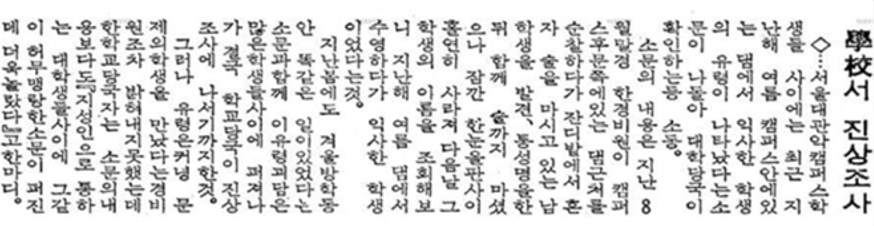 學校서 진상조사
◇…서울대관악캠퍼스학
생들 사이에는 최근 지
난해 여름 캠퍼스안에있
는 댐에서 익사한 학생
의 유령이 나타났다는소
문이 나돌아 대학당국이
확인하는등 소동。
소문의 내용은 지난 8
월말경 한경비원이 캠퍼
스후문쪽에있는 댐근처를
순찰하다가 잔디밭에서 혼
자 술을 마시고 있는 남
학생을 발견、통성명을한
뒤 함께 술까지 마셨
으나 잠깐 한눈을판사이
홀연히 사라져 다음날 그
학생의 이름을 조회해보
니 지난해 여름 댐에서
수영하다가 익사한 학생
이었다는것。
지난봄에도 겨울방학동
안 똑같은 일이있었다는
소문과함께 이유령괴담은
많은학생들사이에 퍼져나
가 결국 학교당국이 진상
조사에 나서기까지한것。
그러나 유령은커녕 문
제의학생을 만났다는경비
원조차 밝혀내지못했는데
한학교당국자는 소문의내
용보다도『지성인으로 통하
는 대학생들사이에 그같
이 허무맹랑한소문이 퍼진
데 더욱놀랐다』고한마디。